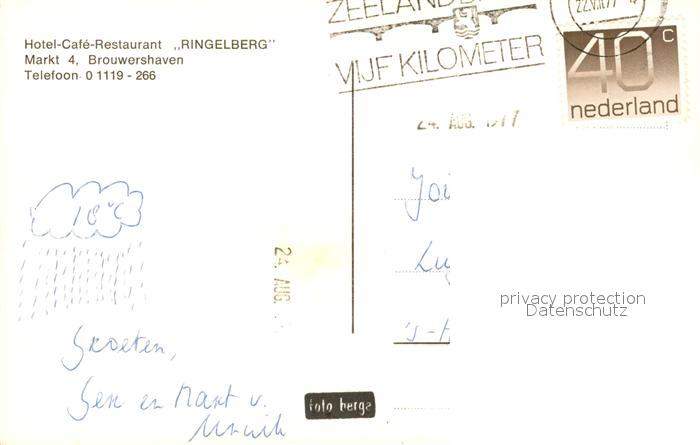 Hotel-Café-Restaurant „RINGELBERG"
Markt 4, Brouwershaven
Telefoon 0 1119 - 266
ZEELAND
VIJF KILOMETER
22.VIII.77
40 c
nederland
24. AUG. 1977
18°C
24. AUG.
privacy protection
Datenschutz
's-H
Groeten,
en Mart v.
foto berge